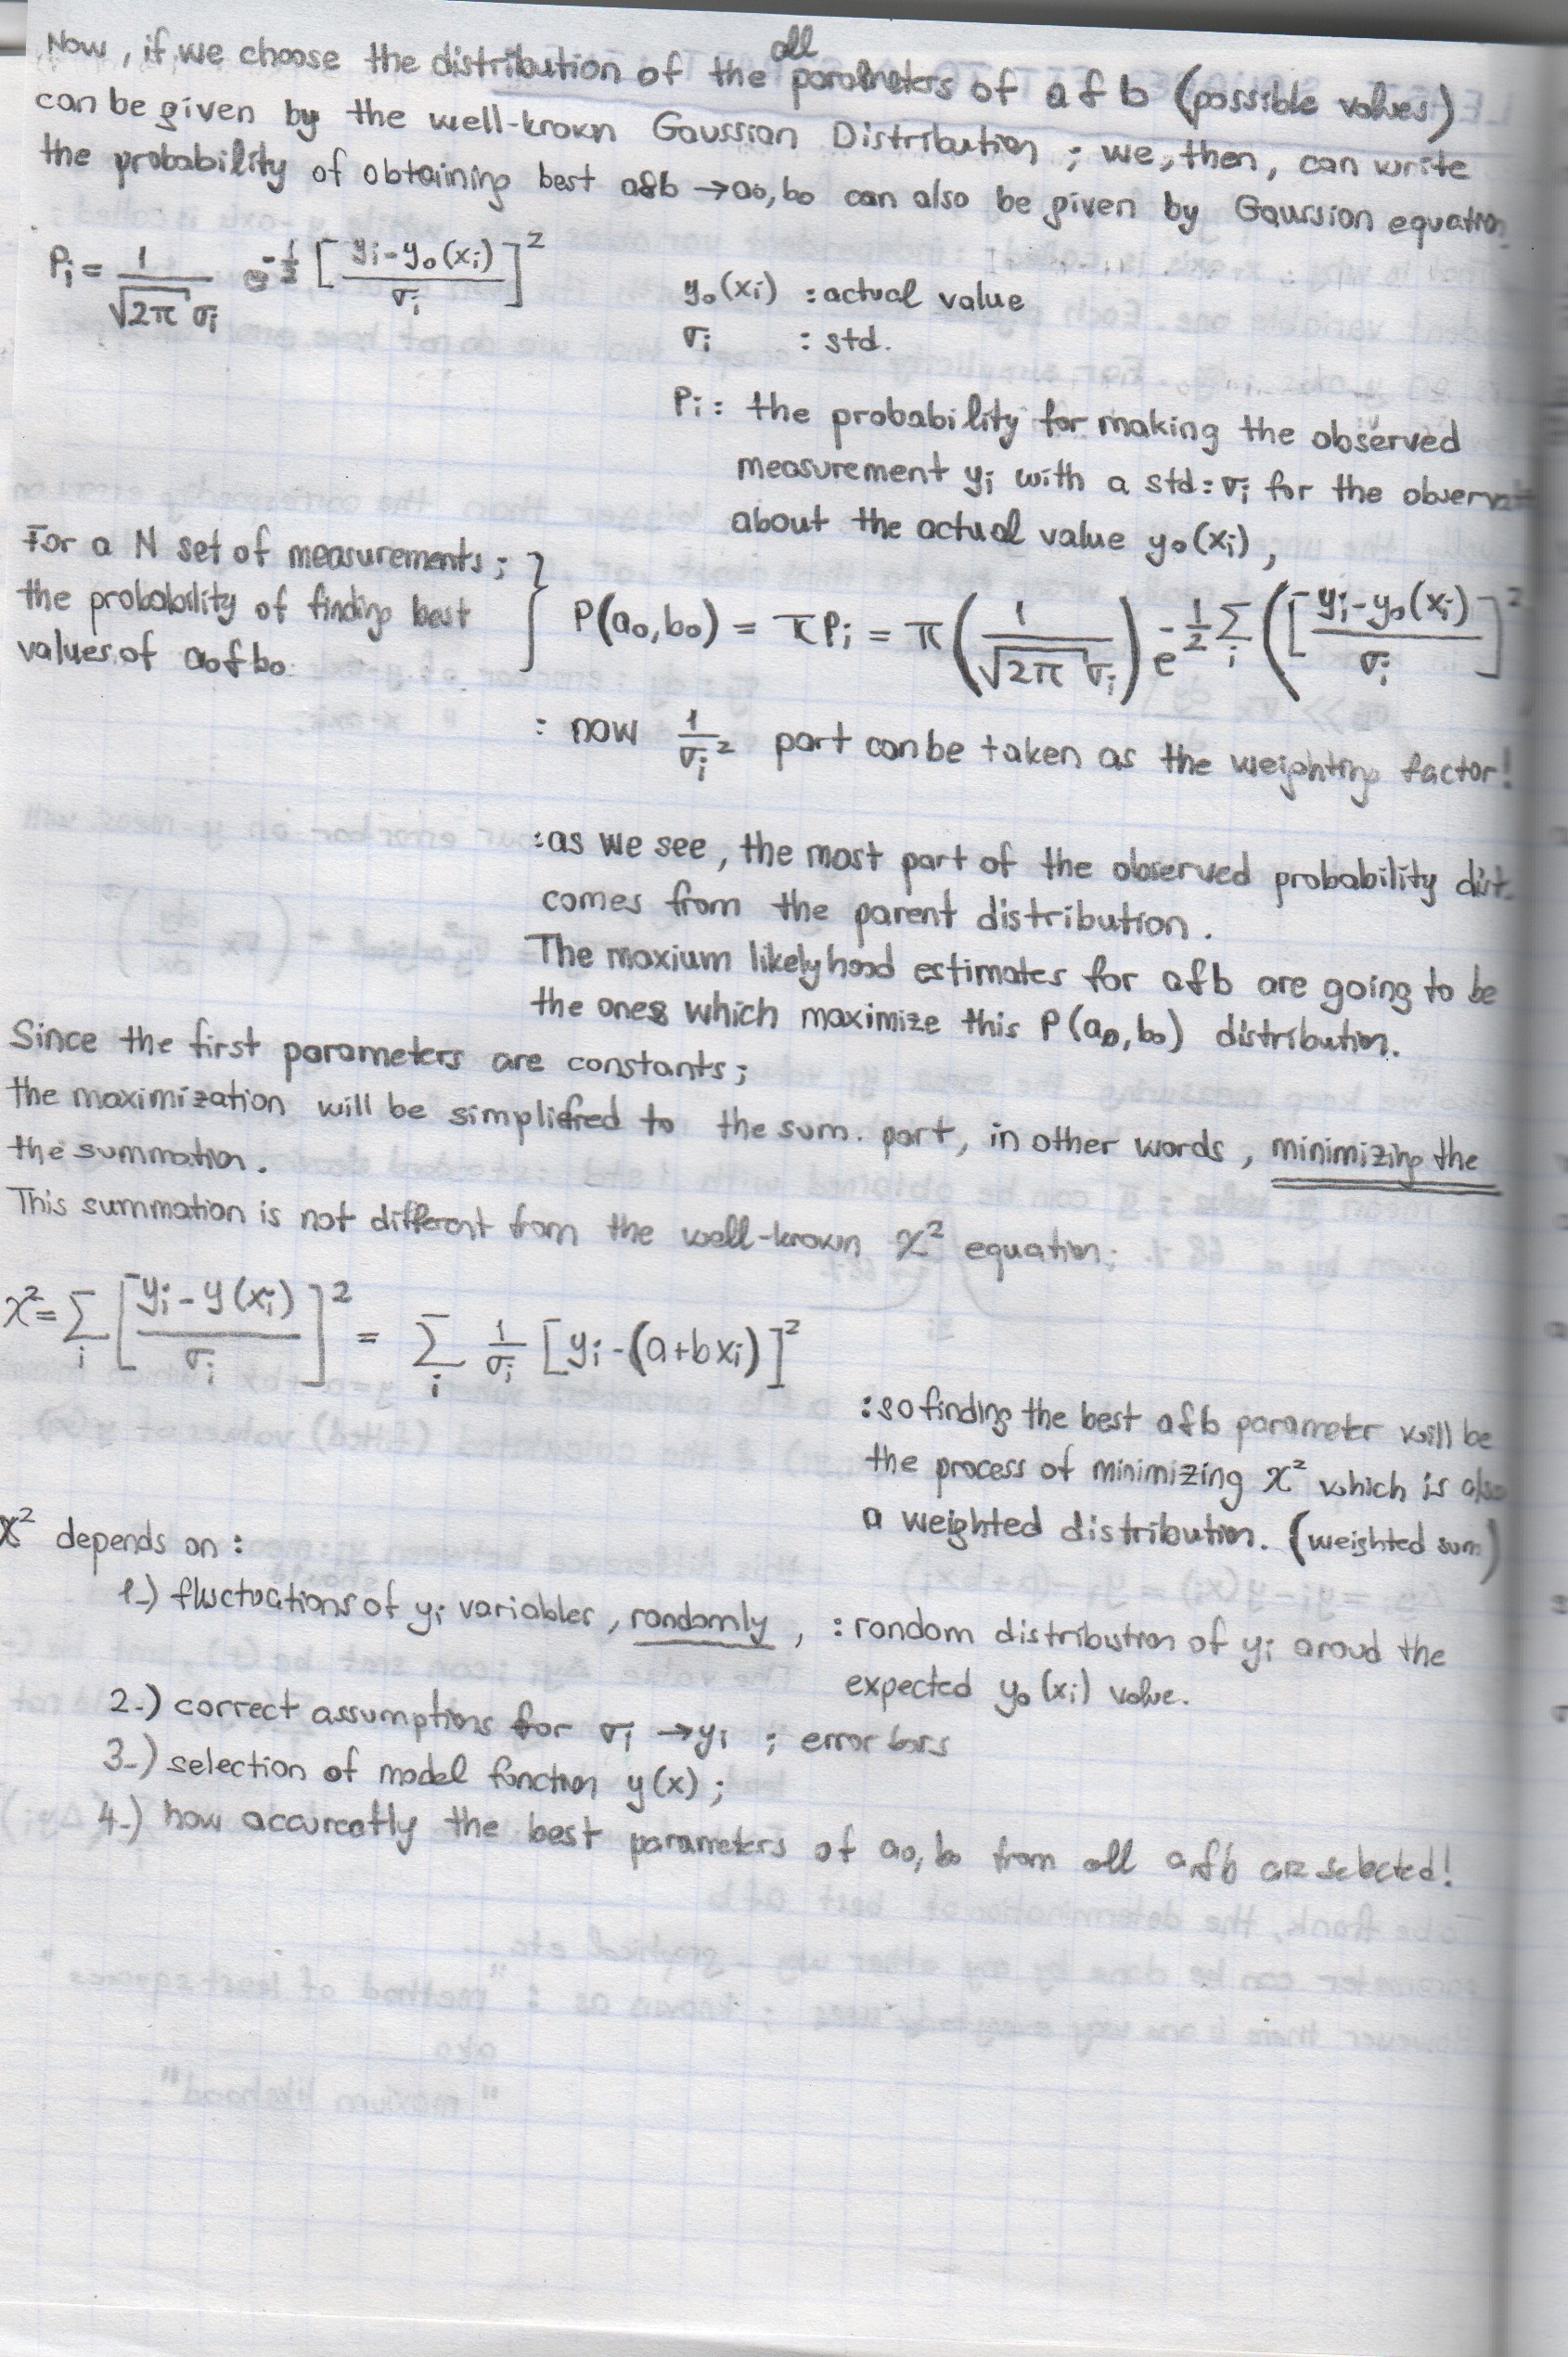 Now, if we choose the distribution of the all parameters of a & b (possible values)
can be given by the well-known Gaussian Distribution ; we, then, can write
the probability of obtaining best a&b → a₀, b₀ can also be given by Gaussian equation
Pᵢ = 1/(√2π σᵢ) e^-1/2 [(yᵢ - y₀(xᵢ))/σᵢ]²
y₀(xᵢ) : actual value
σᵢ : std.
Pᵢ : the probability for making the observed
measurement yᵢ with a std = σᵢ for the observat
about the actual value y₀(xᵢ),
For a N set of measurements;
the probability of finding best
values of a₀ & b₀
} P(a₀, b₀) = π Pᵢ = π (1/(√2π σᵢ)) e^-1/2 Σᵢ ([(yᵢ - y₀(xᵢ))/σᵢ]²
: now 1/σᵢ² part can be taken as the weighting factor!
: as we see, the most part of the observed probability dist.
comes from the parent distribution.
The maxium likelyhood estimates for a & b are going to be
the ones which maximize this P(a₀, b₀) distribution.
Since the first parameters are constants;
the maximization will be simplified to the sum. part, in other words, minimizing the
the summation.
This summation is not different from the well-known χ² equation;
χ² = Σᵢ [(yᵢ - y(xᵢ))/σᵢ]² = Σᵢ 1/σᵢ [yᵢ - (a + bxᵢ)]²
: so finding the best a & b parameter will be
the process of minimizing χ² which is also
a weighted distribution. (weighted sum)
χ² depends on :
1-) fluctuations of yᵢ variables, randomly, : random distribution of yᵢ aroud the
expected y₀(xᵢ) value.
2-) correct assumptions for σᵢ → yᵢ ; error bars
3-) selection of model function y(x) ;
4-) how accurcatly the best parameters of a₀, b₀ from all a & b are selected!